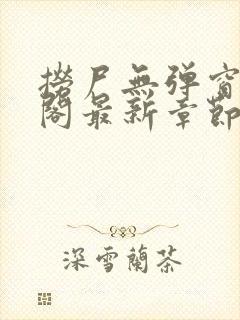 撈尸無彈窗
閣最新章節
深雪蘭茶